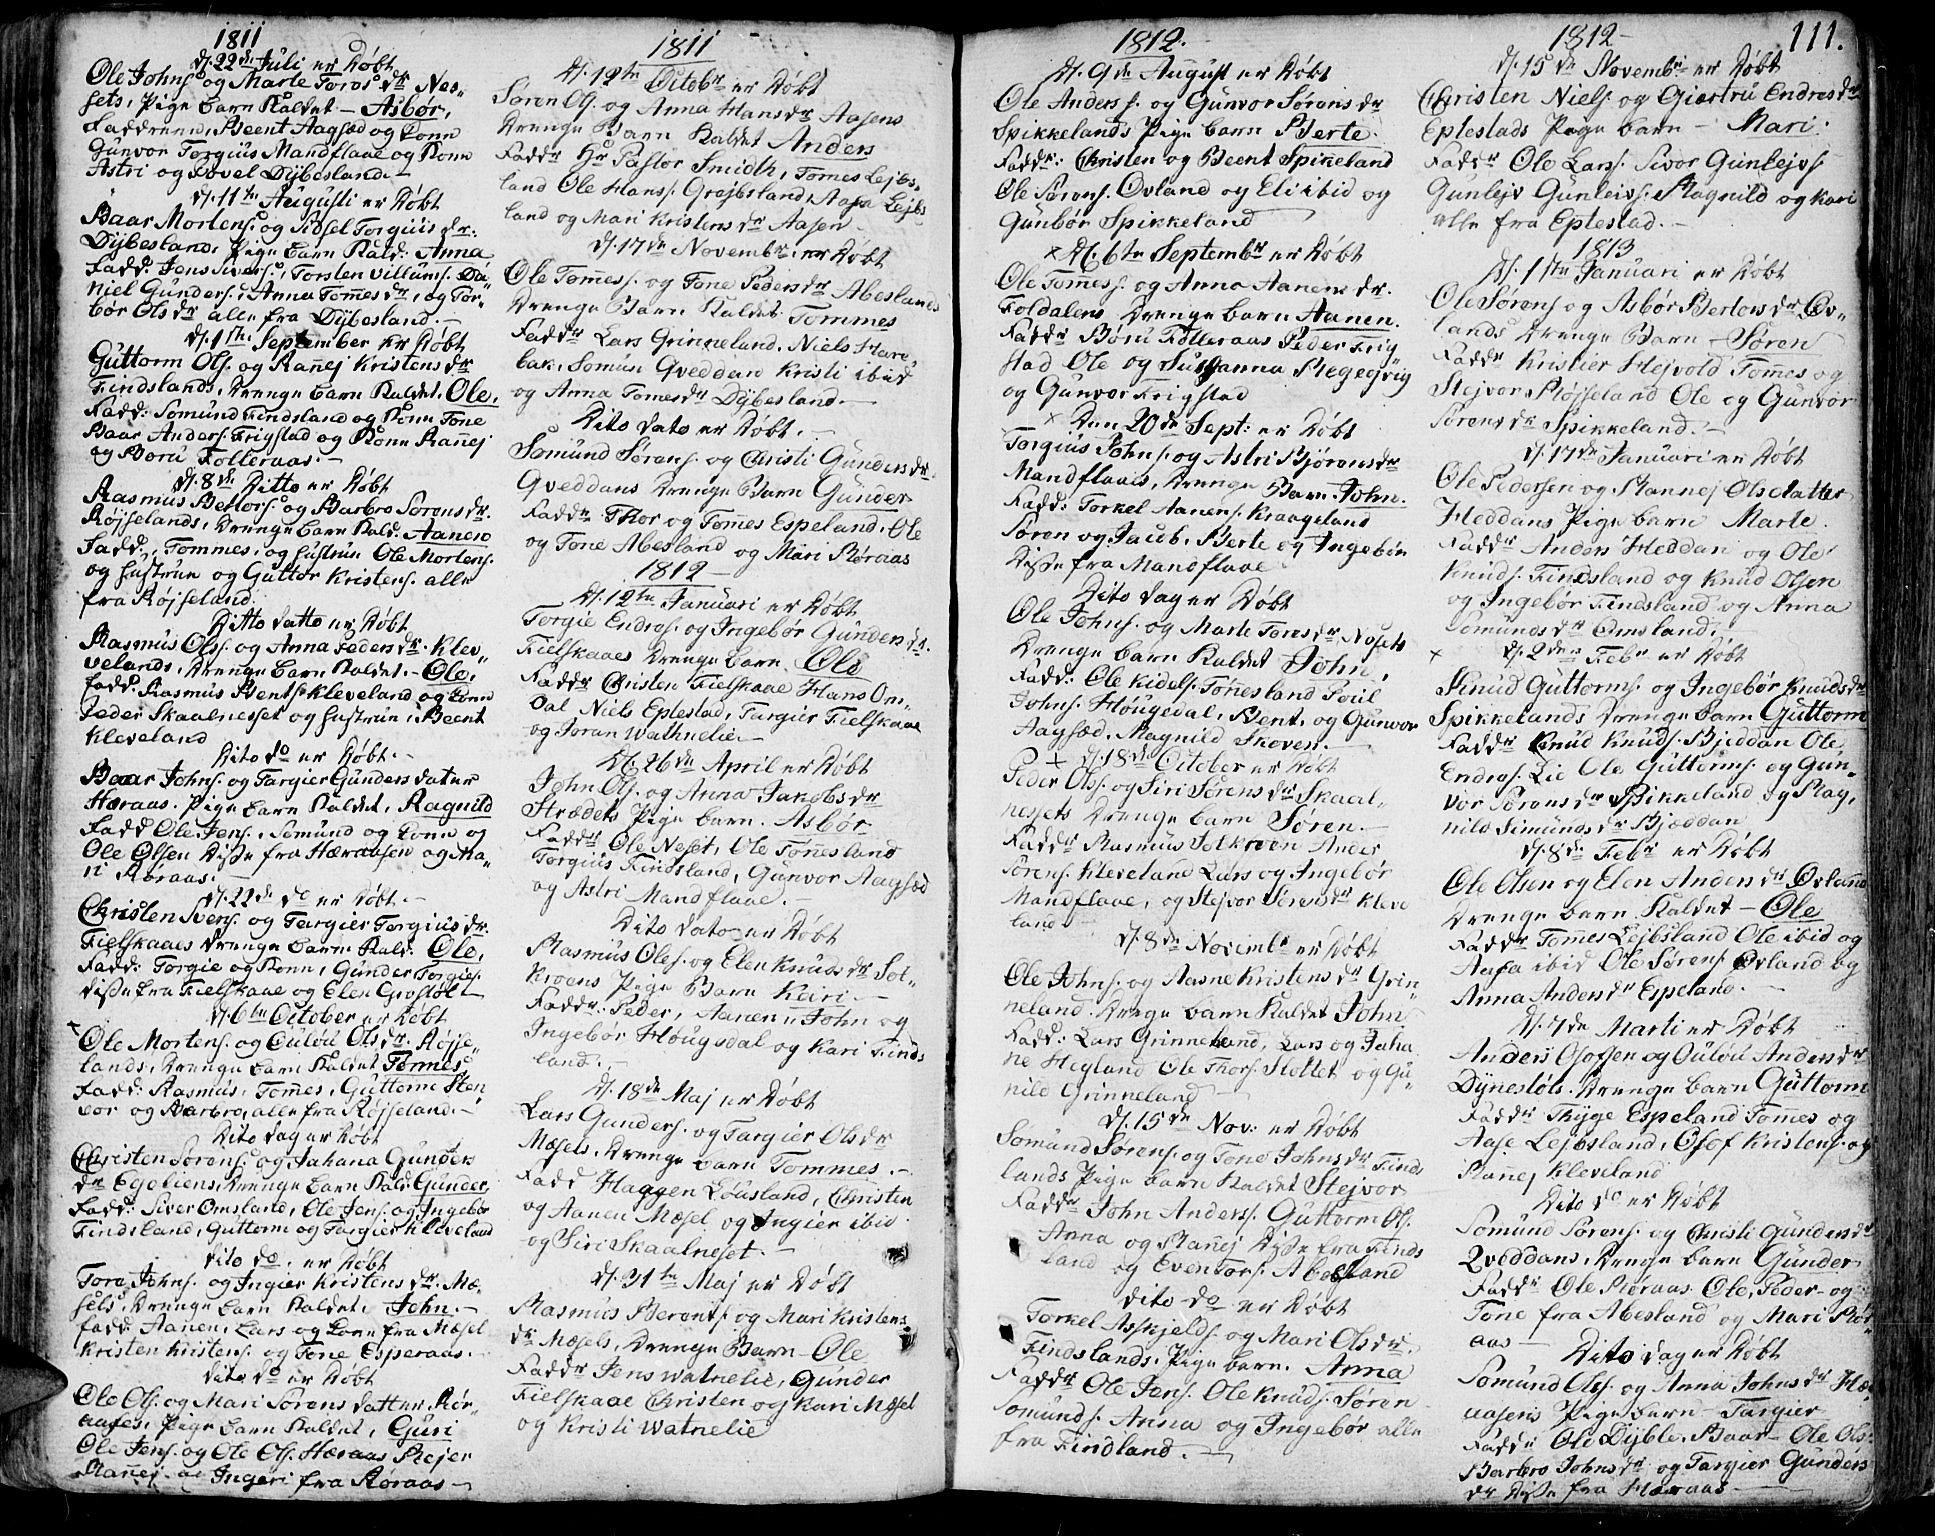 1811
d. 22de Juli er Døbt
Ole Johns. og Marte Toros dr Nes-
sets, Pige barn Kaldet - Asbør,
Faddrene, Beent Aagsæd og Konn
Gunvor Torgius Mandflaae og Konn
Astri og Lovel Dÿbesland.-
d. 11te Augusti er Døbt
Baar Mortens. og Sidsel Torgius dr.
Dÿbeslands Pige barn Kald: Anna
Fadd: Jens Sivers., Torsten Villums. Da-
niel Gunders., Anna Tommes dr, og Tor-
bør Ols dr alle fra Dÿbesland.-
d. 1ste September er Døbt
Guttorm Ols. og Rannej Kristens dr
Findslands, Drenge barn Kaldet, Ole,
Fadd: Somund Findsland og Konn Tone
Baar Anders. Frigstad og Konn Rannej
og Boru Folleraas.-
d. 8de Ditto er Døbt
Rasmus Bertors. og Barbro Sørens dr.
Røjselands, Drenge barn Kald. Aanen
Fadd, Tommes, og Hustrun Ole Mortens.
og Hustrun og Guttor Kristens. alle
fra Røjseland.
Ditto datto er Døbt
Rasmus Ols. og Anna Peders dr. Klev-
velands, Drenge barn Kaldet.- Ole,
Fadd. Rasmus Bents. Kleveland og Konn
Peder Skaalnesset og Hustrun, Beent
Kleveland
Dito do er Døbt.-
Baar Johns. og Targier Gunders datter
Hæraas. Pige barn Kaldet, Ragnild
Fadd Ole Jens., Somund og Konn og
Ole Olsen Disse fra Hæraasen og Ma-
ri Røraas.-
d. 22de do er Døbt.-
Christen Svens. og Targier Torgius dr.
Fielskaaes Drenge barn Kald. Ole,
Fadd: Torgie og Konn, Gunder Torgies.
disse fra Fielskaae og Elen Grostølt
d. 6te October er Døbt
Ole Mortens. og Gulou Ols dr. Røjse-
lands, Drenge barn Kaldet Tommes
Fadd: Rasmus, Tommes, Guttorm Sten
vor og Barbro, alle fra Røjseland.-
Dito dag er Døbt
Christen Sørens. og Jahana Gunders
dr Egeliens, Drenge barn Kald Gunder,
Fadd: Siver Omsland, Ole Jens. og Ingebør
Findsland, Guttorm og Targier Kleveland
dito do, er Døbt
Tore Johns. og Ingier Kristens dr. Mæ-
sels, Drenge barn Kaldet, John.-
Fadd. Aanen, Lars og Konn fra Mæsel
Kristen Kristens. og Tone Esperaas.-
dito do er Døbt
Ole Ols. og Mari Sørens datter Rør-
aases, Pige barn Kaldet, Guri
Ole Jens. og Ole Ols. Hæraas Rejer
Rannej og Ingeri fra Røraas-
1811
d. 12te Octobr er Døbt
Søren Ols. og Anna Hans dr Aasens
Drenge Barn Kaldet Anders
Faddr Hr Pastor Smidth, Tommes Lejbs-
land Ole Hans. Grejbsland, Aasa Lejbs
land og Mari Kristens dr Aasen.-
d. 17de Novembr. er Døbt
Ole Tommes. og Tone Peders dr Abeslands
Drenge Barn Kaldet. Tommes
Faddr Lars Grinneland. Niels Hare-
bak, Somun Qveddan Kristi ibid
og Anna Tommes dr Dÿbesland.-
Dito dato er Døbt.-
Somund Sørens. og Christi Gunders dr.
Qveddans Drenge Barn Gunder
Faddr Thor og Tommes Espeland, Ole
og Tone Abesland og Mari Røraas
1812
d. 12te Januari er Døbt
Torgie Endres. og Ingebør Gunders dr.
Fielskaaes Drenge barn Ole
Faddr Christen Fielskaae Hans Om-
dal Niels Eplestad, Targier Fielskaae
og Joran Wathnelie.-
d. 26de April er Døbt
John Ols. og Anna Jakobs dr
Strædets Pige barn. Asbør
Faddr Ole Neset, Ole Tommesland
Torgius Findsland, Gunvor Aagsæd
og Astri Mandflaae.-
Dito dato er Døbt
Rasmus Oles. og Elen Knuds dr Sol-
kroens Pige Barn Kari.-
Faddr: Peder, Aanen, John og
Ingebør Hougsdal og Kari Finds
land.-
d. 18de Maj er Døbt
Lars Gunders. og Targier Ols dr
Mæsels. Drenge barn Tommes.-
Fadd Haggen Løusland, Christen
og Aanen Mæsel og Ingier ibid
og Siri Skaalneset.-
d. 31te Maj er Døbt
Rasmus Berents. og Mari Kristens
dr Mæsels, Drenge Barn - Ole
Faddr Jens Watnelie, Gunder
Fielskaae Christen og Kari Mæsel
og Kristi Watnelie
1812.-
d. 9de August er Døbt
Ole Anders s. og Gunvor Sørens dr
Spikkelands Pige barn Berte.
Faddr: Christen og Beent Spinneland
Ole Sørens. Øvland og Eli ibid og
Gunbør Spikkeland
x d. 6te Septembr er Døbt
Ole Tommes s. og Anna Aanens dr.
Foldalens Drenge barn Aanen.
Faddr Børu Folleraas Peder Frig-
stad Ole og Susanna Regevig
og Gunvor Frigstad
x Den 20de Sept: er Døbt
Torgius Johns. og Astri Bjørens dr
Mandflaais, Drenge Barn John.
Fadd: Torkel Aanens. Kraageland
Søren og Jacub, Berte og Ingebør
Disse fra Mandflaae
Dito dag er Døbt
Ole Johns. og Marte Tores dr Nesets
Drenge barn Kaldet John,
Fadd: Ole Kidels. Tommesland Poul
Johns. Hougedal, Bent, og Gunvor
Aagsæd, Magnild Skoven.-
x d. 18de October er Døbt
Peder Ols. og Siri Sørens dr Skaal-
nessets Drenge barn Søren.-
Faddr Rasmus Solkroen Ander
Sørens. Kleveland Lars og Ingebør
Mandflaae, og Stejvor Sørens dr Kleve
land
d. 8de Novembr er Døbt
Ole Johns. og Aasne Kristens dr Grin-
neland. Drenge barn Kaldet John
Fadd: Lars Grinneland, Lars og Jaha
ne Hegland Ole Thors. Slottet og Gu-
nild Grinneland
d. 15de Nov. er Døbt
Somund Sørens. og Tone Johns dr Finds
lands Pige barn Kaldet Stejvor
Faddr John Anders. Guttorm Ols.
Anna og Rannej Disse fra Finds
land og Even Tors. Abesland
dito do er Døbt
Torkel Asskjelds. og Mari Ols dr.
Findslands, Pige barn. Anna
Faddr Ole Jens. Ole Knuds. Søren
Somunds. Anna og Ingebør alle
fra Findland.-
1812
111.
d. 15de Novembr er Døbt
Christen Niels. og Giertru Endres dr
Eplestads Pige barn - Mari.
Faddr Ole Lars. Sivor Gunlejvs
Gunlejv Gunleivs. Ragnild og Kari
alle fra Eplestad.-
1813
d. 1ste Januari er Døbt
Ole Sørens. og Asbør Bertors dr Øv-
lands Drenge Barn - Søren
Faddr Kristier Hejvold Tommes og
Stejvor Røjseland Ole og Gunvor
Sørens dr Spikkeland.-
d. 17de Januari er Døbt
Ole Pedersen og Rannej Olsdatter
Heddans Pige barn Marte.
Faddr Anders Heddan og Ole
Knuds. Findsland og Knud Olsen
og Ingebør Findsland og Anna
Somunds dr Omsland.
x d. 2den Febr er Døbt
Knud Guttorms. og Ingebør Knuds dr
Spikkelands Drenge barn Guttorm
Faddr Knud Knuds. Bjeddan Ole
Endres. Lie Ole Guttorms. og Gun-
vor Sørens dr Spikkeland og Rag-
nild Simunds dr Bjæddan
d. 8de Febr er Døbt
Ole Olsen og Elen Anders dr Øvland
Drenge barn Kaldet - Ole
Faddr Tommes Lejbsland Ole ibid og
Aasa ibid Ole Sørens. Øvland og
Anna Anders dr Espeland.-
d. 7de Marti er Døbt
Anders Osofsen og Gulou Anders dr
Dÿnestøls. Drenge barn Guttorm
Faddr Thÿge Espeland Tommes og
Aase Lejbsland, Osof Kristens. og
Rannej Kleveland
Dito do er Døbt
Somund Sørens. og Christi Gunders dr
Qveddans. Drenge barn Gunder
Faddr Ole Røraas. Ole, Peder og
Tone fra Abesland og Mari Rør-
aas-
Dito dag er Døbt
Somund Ols. og Anna Johns dr Hær-
aasens Pige barn - Targier
Faddr Ole Dÿble. Baar Ole Ols.
Barbro Johns dr og Targier Gunders
dr Disse fra Hæraas-